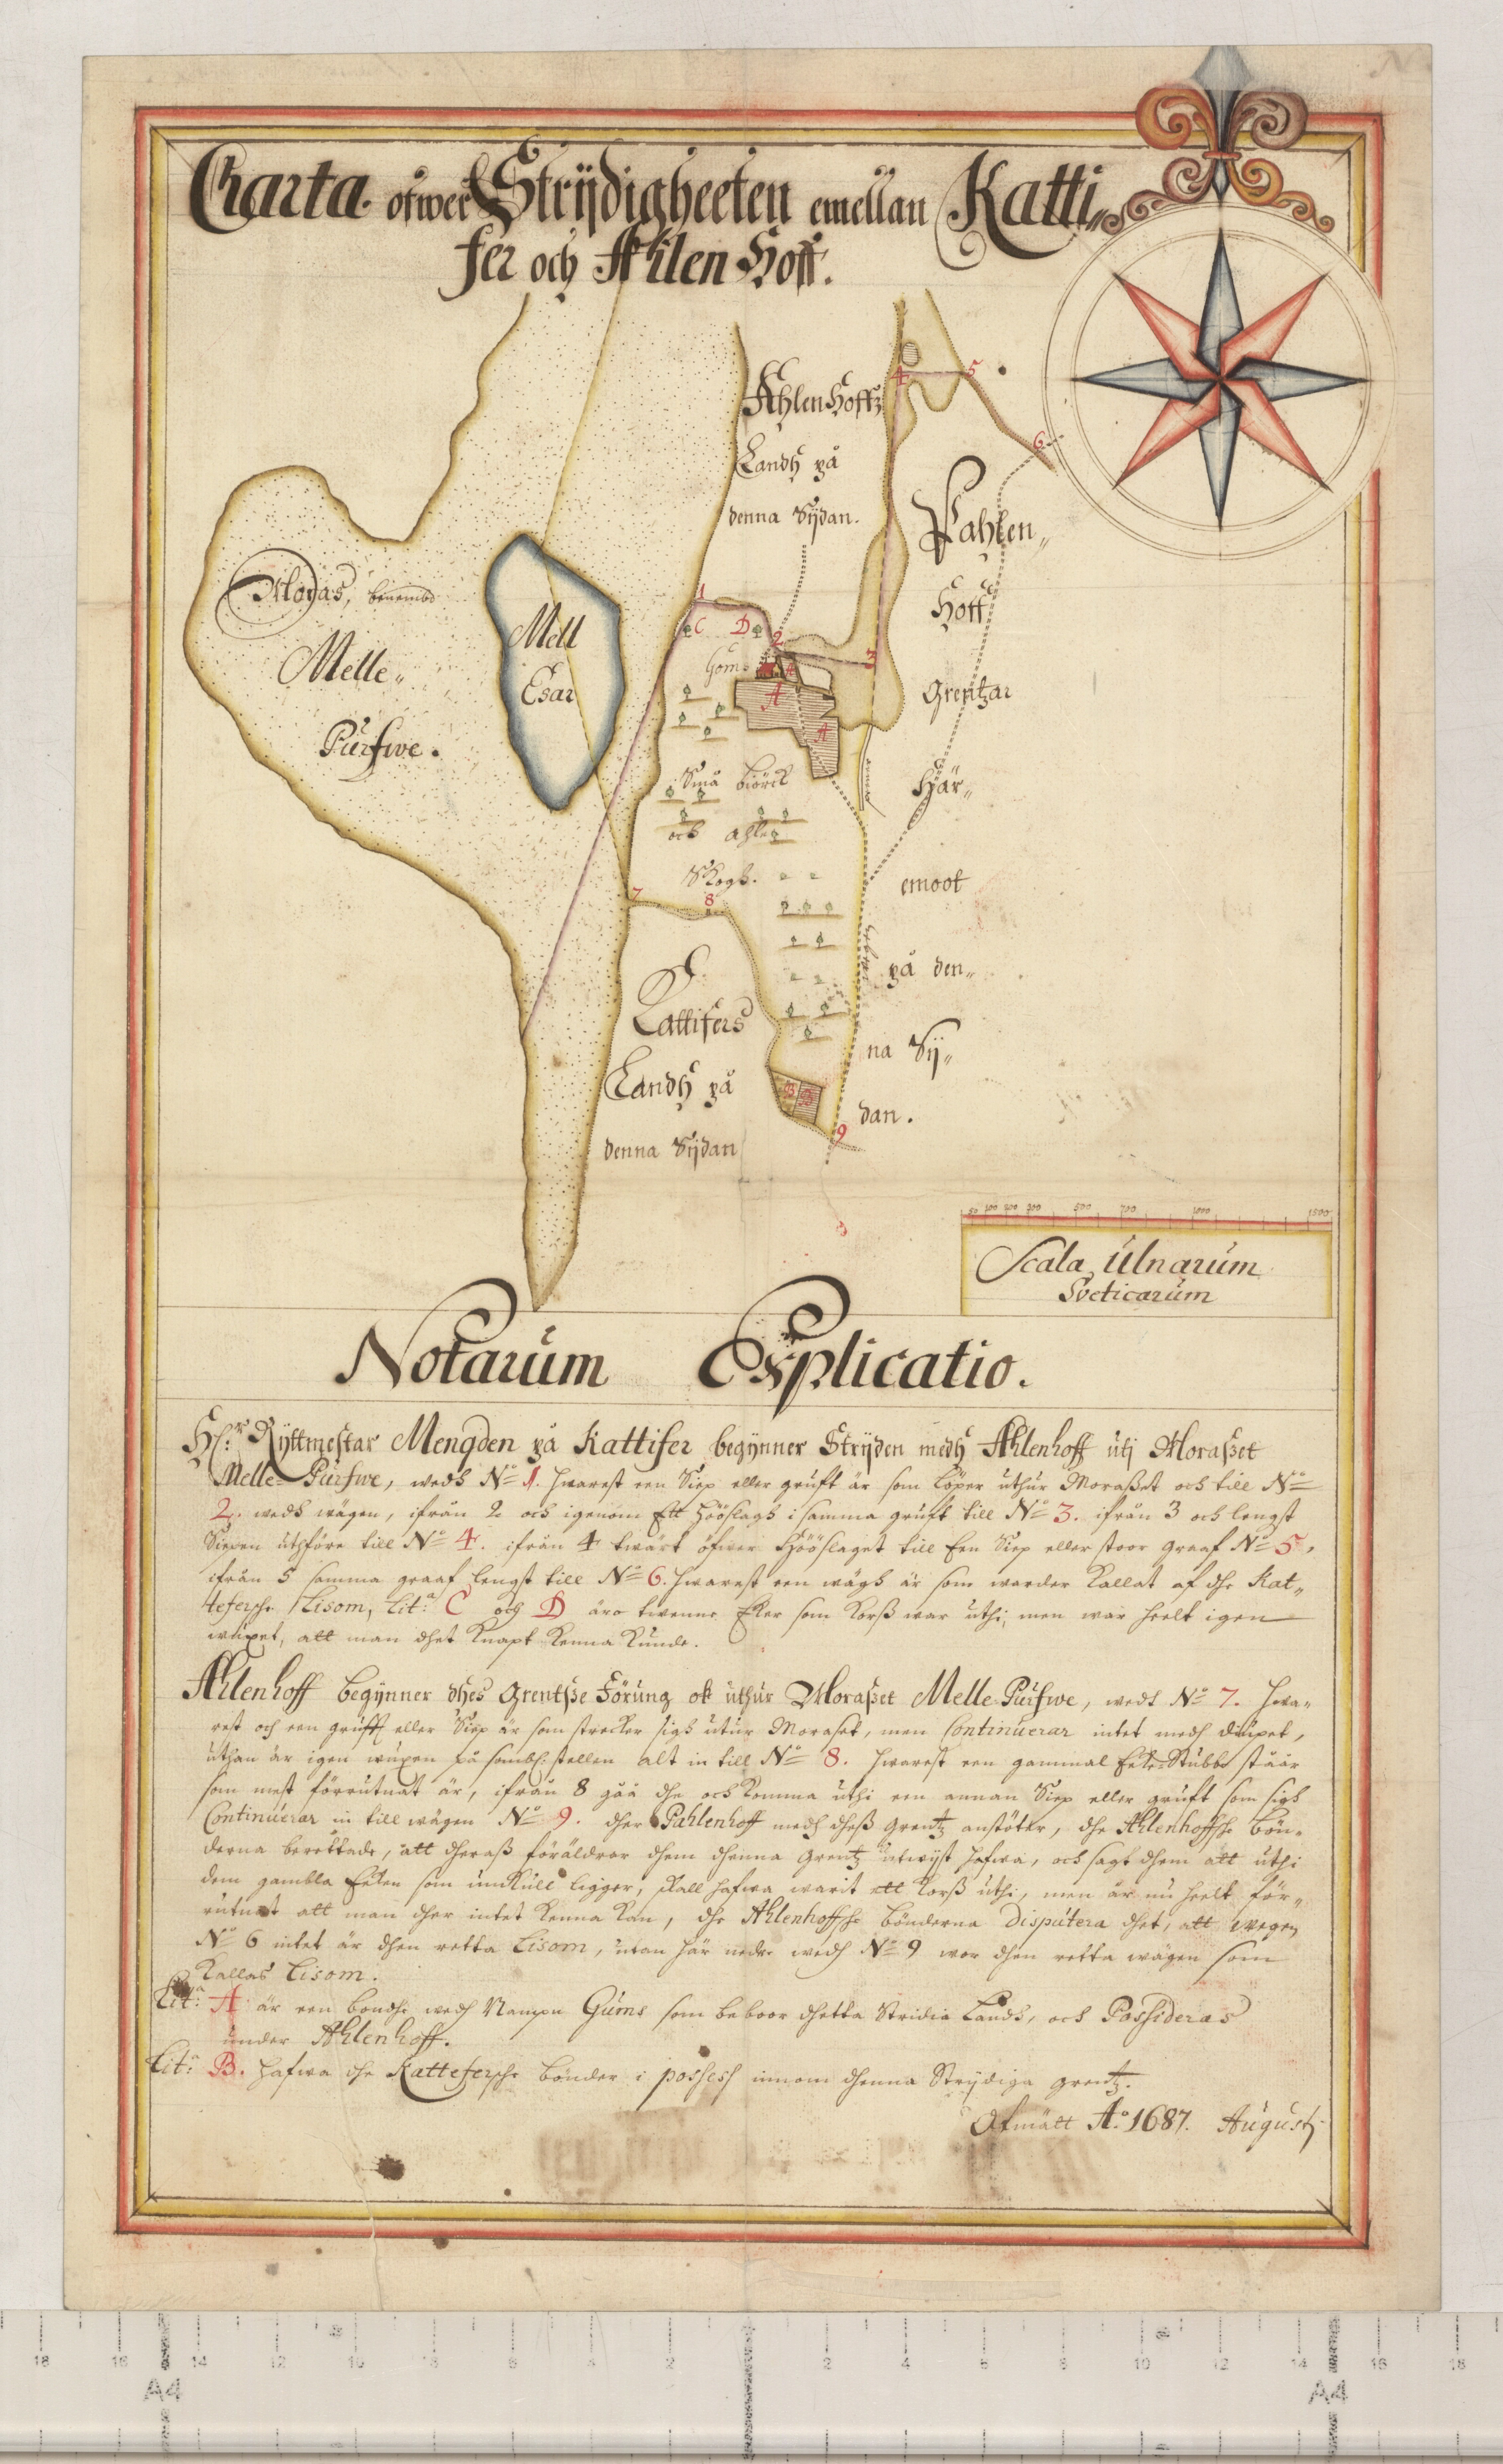 Charta öfwer Strÿdigheeten emellan Katti„
fer och Ahlen Hoff.
Ahlenhoffz
Landh på
denna Sÿdan.
4
5
6
Pahlen„
Hoff
Grentzar
Hÿär„
emoot
på den„
na Sÿ„
dan.
Moras, benembd
Melle„
Purfwe.
Mell
Esar
1
C
D
2
3
Goms
A
A
A
Små biörck
och ahle
Skogh.
7
8
Kattifers
Landh på
denna Sÿdan
B
B
9
50 100 200 300 500 700 1000 1500
Scala Ulnarum
Sveticarum
Notarum Explicatio.
H:r Rÿttmestar Mengden på Kattifer begÿnner Strÿden medh Ahlenhoff utj Moraßet
Melle Purfwe, wedh No 1. hwarest een Siep eller gruft är som löper uthur Moraßet och till No
2. wedh wägen, ifrån 2 och igenom Ett Hööslagh i samma gruft till No 3. ifrån 3 och lengst
Siepen uthföre till No 4. ifrån 4 twärt öfwer Hööslaget till Een Siep eller stoor graaf No 5,
ifrån 5 samma graaf lengst till No 6. hwarest een wägh är som warder kallat af dhe Kat„
tefersche Lisom, Lit:a C och D äro twenne Eker som Korß war uthi, men war heelt igen
wuxet, att man dhet knapt kenna kunde.
Ahlenhoff begÿnner dhes Grentße Förung ok uthur Moraßet Melle Purfwe, wedh No 7. hwa„
rest och een gruft eller Siep är som strecker sigh utur Moraset, men Continuerar intet medh diupet,
uthan är igen wuxen på somblstellen alt in till No 8. hwarest een gammal Eeke Stubbe stäär
som mest förrutnat är, ifrån 8 gåå dhe och komma uthi een annan Siep eller gruft som sigh
Continuerar in till wägen No 9. dher Pahlenhoff medh dheß grentz anstöter, dhe Ahlenhoffsche Bön„
derna berettade, att dheraß föräldrar dhem dhenna grentz utwijst hafwa, och sagt dhem att uthi
dem gambla Eeken som umkull ligger, skall hafwa warit ett Korß uthi, men är nu heelt för„
rutnat att man dher intet kenna kan, dhe Ahlenhoffsche bönderna disputera dhet, att wegen
No 6 intet är dhen retta Lisom, utan här nedre wedh No 9 wor dhen retta wägen som
kallas Lisom.
Lit:a A är een bondhe wedh Nampn Gums som beboor dhetta Stridia Landh, och Possideras
under Ahlenhoff.
Lit: B. hafwa dhe Kattefersche bönder i possess innom dhenna Strÿdiga grentz.
Afmätt Ao 1687. Augustj
18 16 14 12 10 8 6 4 2 2 4 6 8 10 12 14 16 18
A4 A4